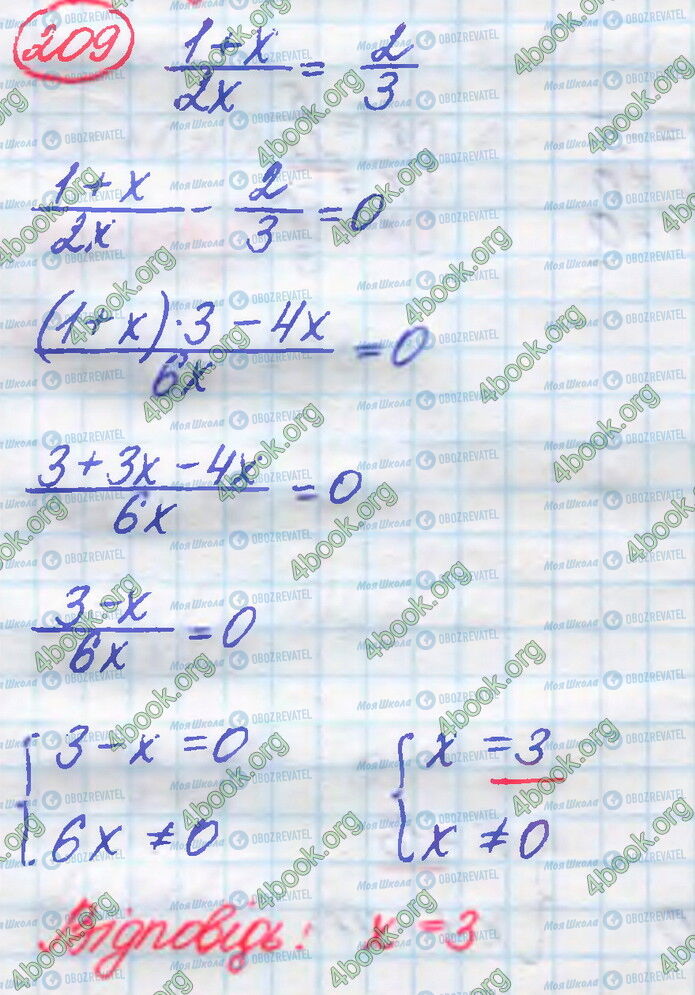 209
(1+x)/(2x) = 2/3
(1+x)/(2x) - 2/3 = 0
((1+x)·3-4x)/(6x) = 0
(3+3x-4x)/(6x) = 0
(3-x)/(6x) = 0
{ 3-x=0 { x=3
6x≠0 x≠0
Відповідь: x=3
4book.org
Моя Школа OBOZREVATEL